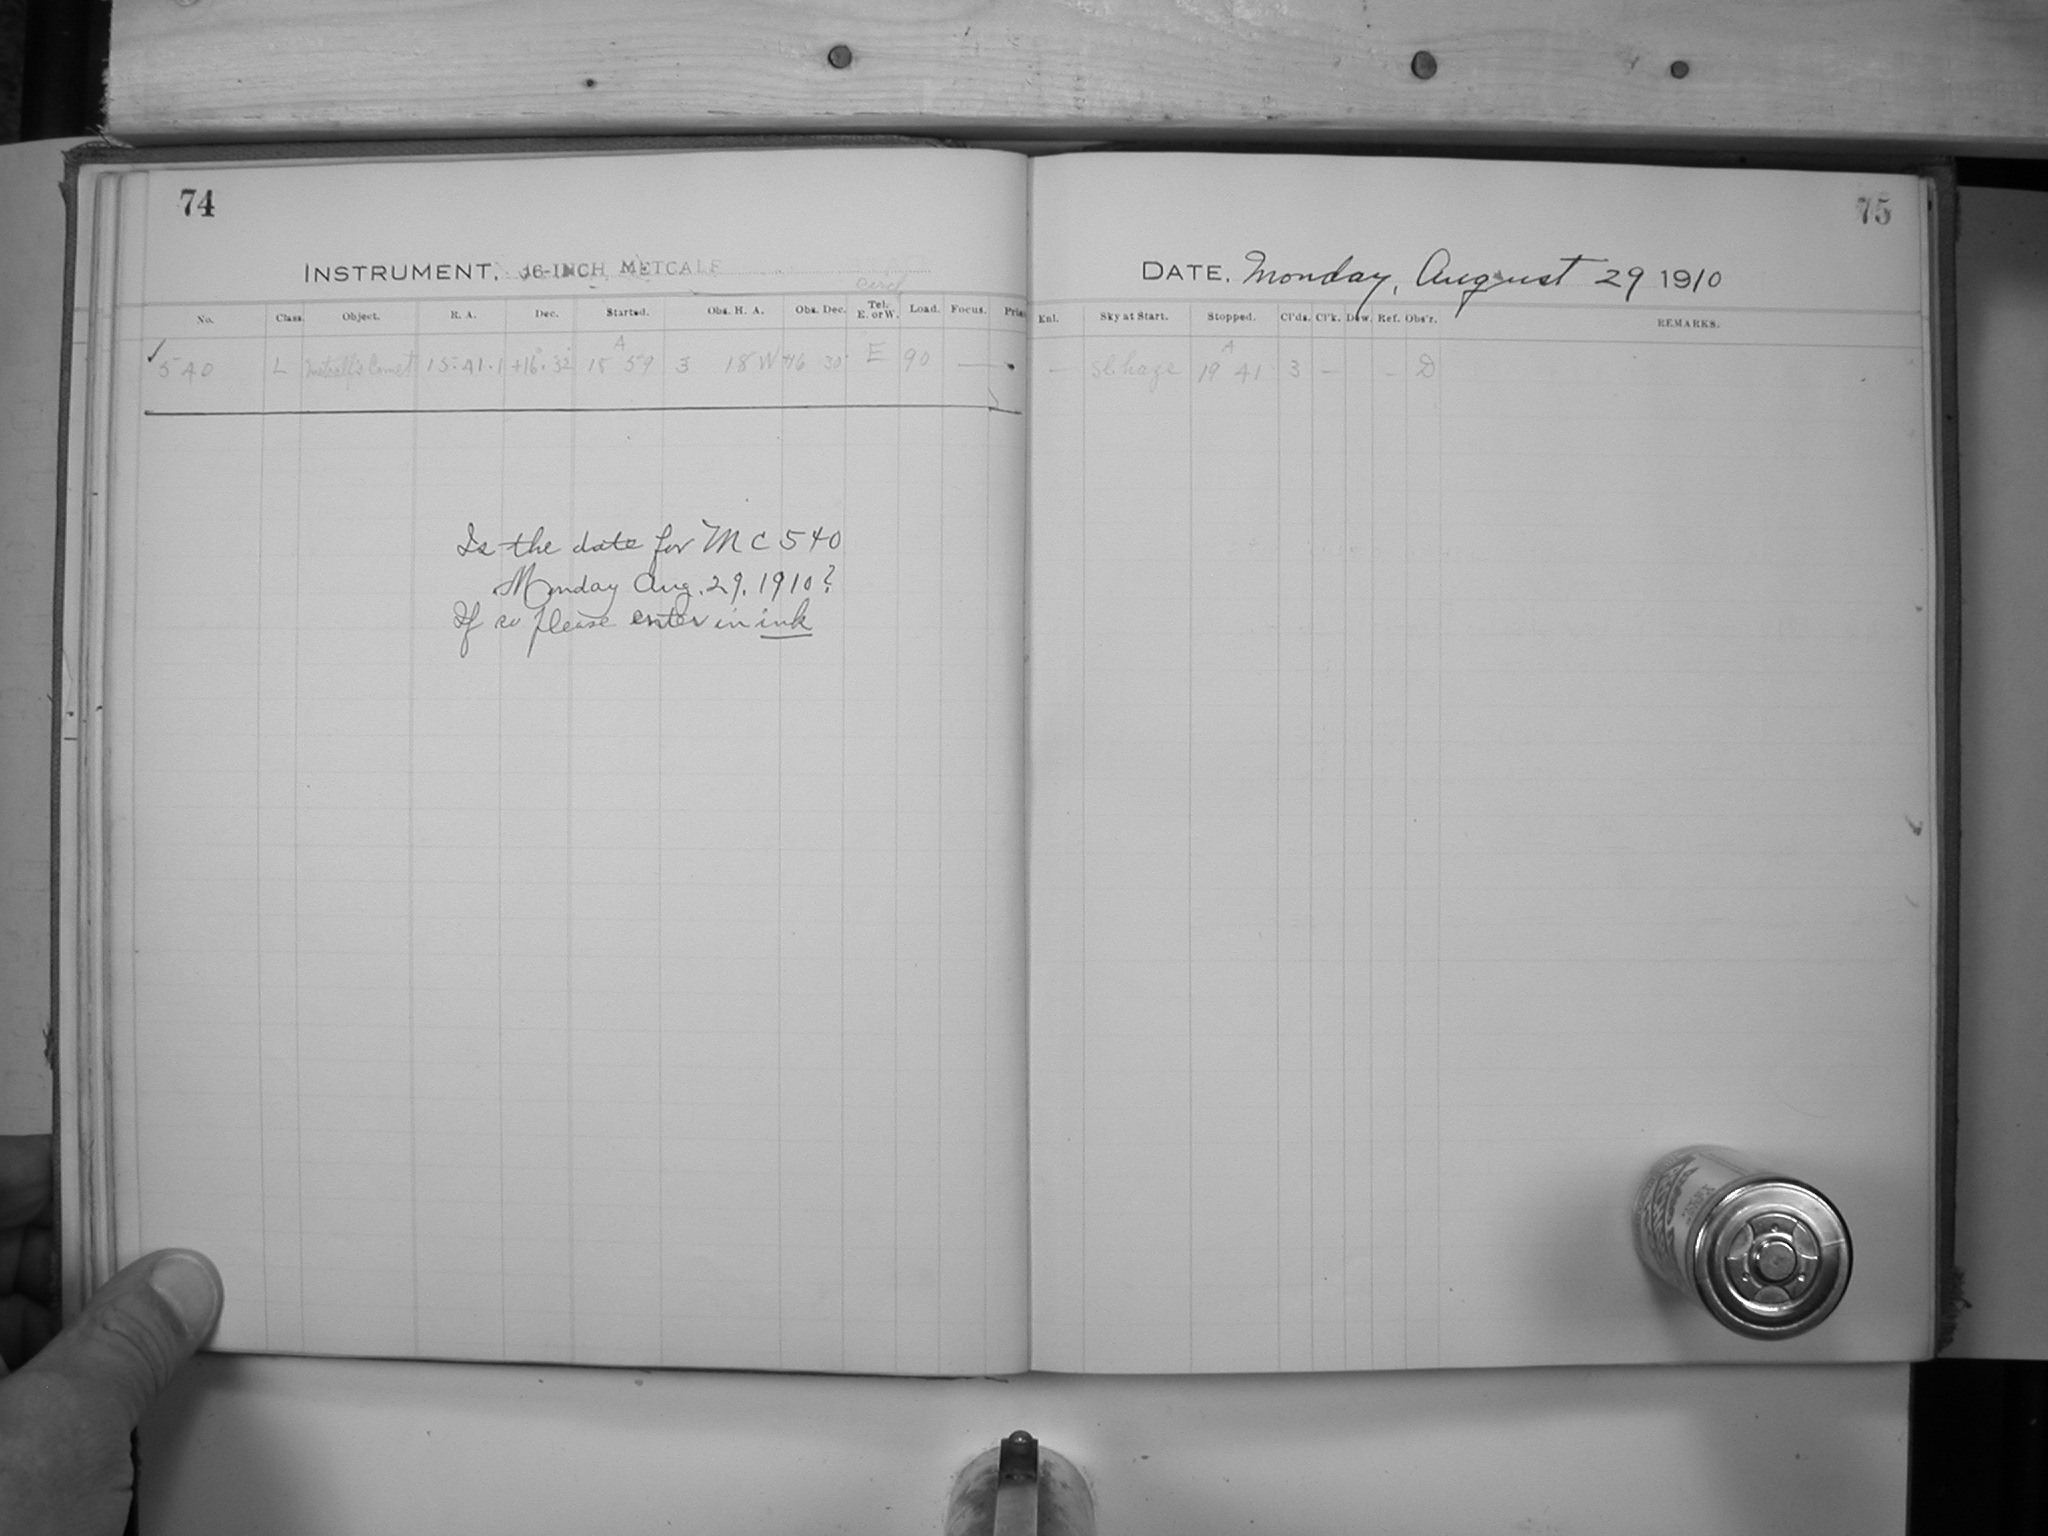 74
INSTRUMENT. 16-INCH METCALF
No. Class. Object. R. A. Dec. Started. Obs. H. A. Obs. Dec. Tel. E. or W. Load. Focus.
✓ 540 L Metcalf's Comet 15 41.1 +16° 32' 15 A 59 3 18 W 30 E 90 —
Is the date for MC 540
Monday Aug. 29, 1910?
If so please enter in ink
75
DATE. Monday, August 29 1910
Enl. Sky at Start. Stopped. Cl'ds. Cl'k. Dew. Ref. Obs'r. REMARKS.
– Sl. haze 19 A 41 3 – – D